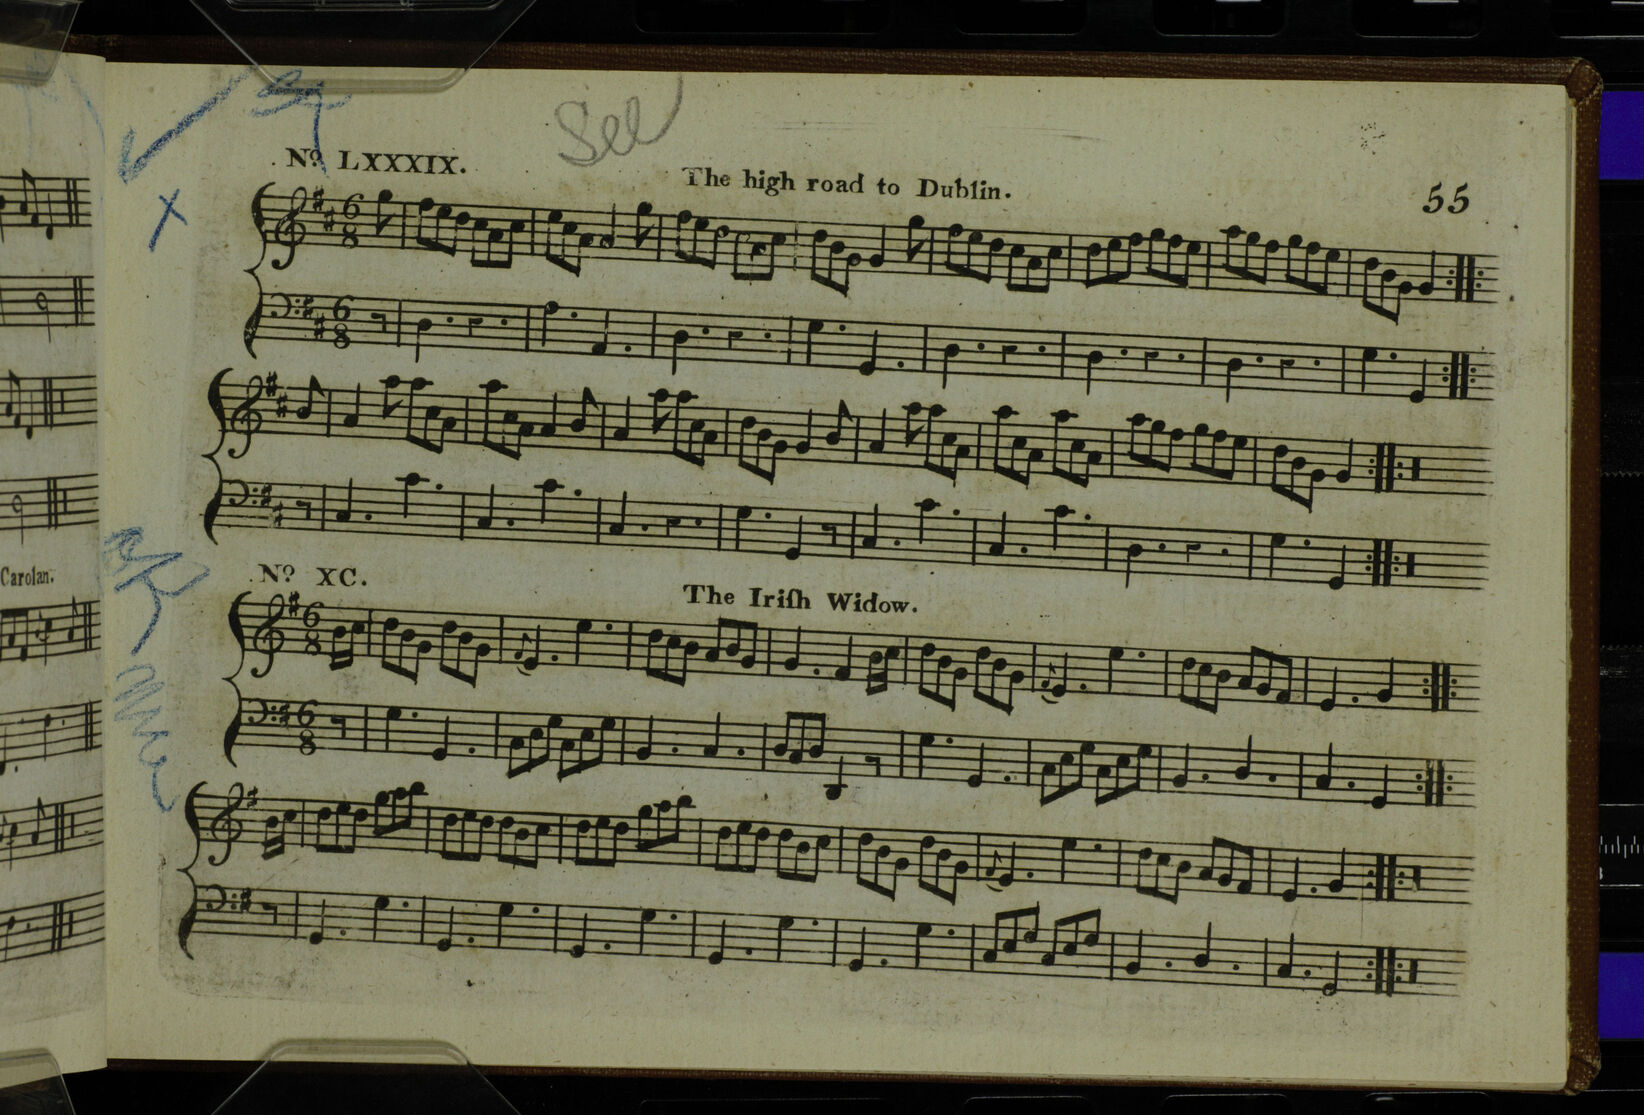 See
Nº. LXXXIX.
The high road to Dublin.
55
6
8
6
8
Carolan.
Nº. XC.
The Iriſh Widow.
6
8
6
8